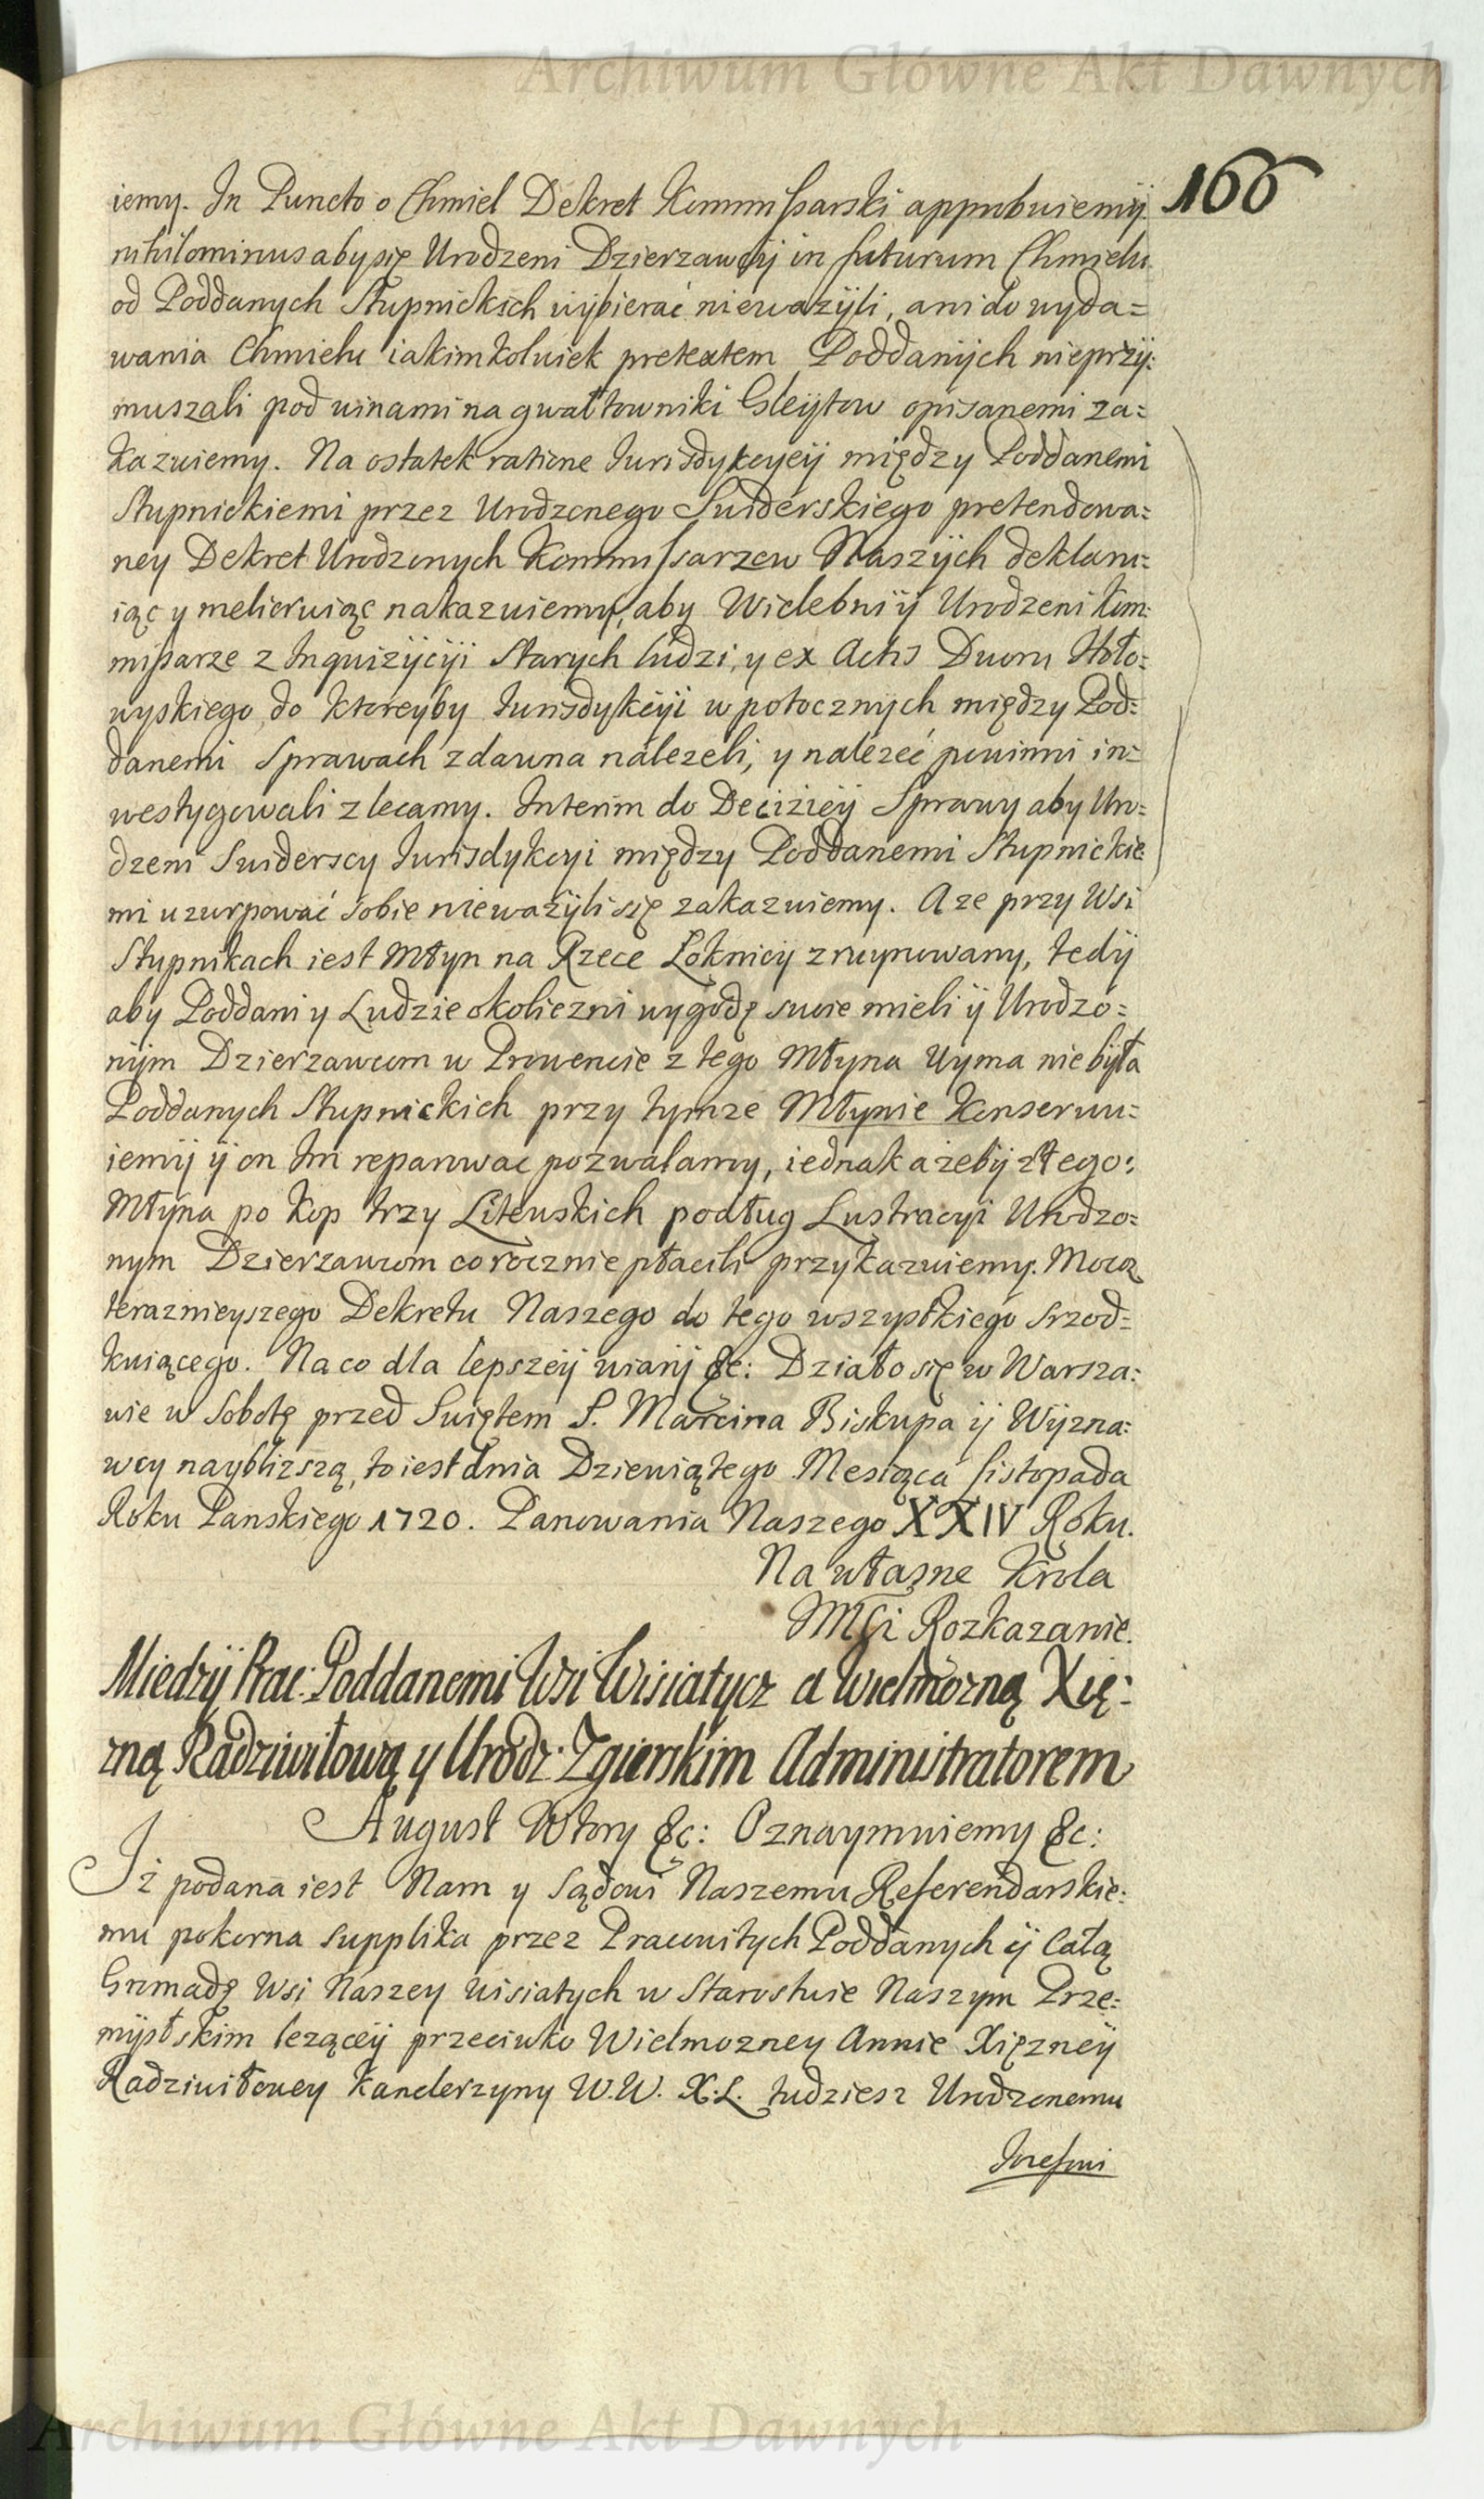 Archiwum Główne Akt Dawnych
166
iemy. In Puncto o Chmiel Dekret Kommissarski approbuiemÿ
nihilominus aby się Urodzeni Dzierzawcÿ in futurum Chmielu
od Poddanych Stupnickich wÿbierać niewazÿli, ani do wyda=
wania Chmielu iakimkolwiek pretextem Poddanÿch nieprzÿ=
muszali pod winami na gwałtowniki Gleytow opisanemi za=
kazuiemy. Na ostatek ratione Jurisdykcyeÿ między Poddanemi
Stupnickiemi przez Urodzonego Swiderskiego pretendowa=
ney Dekret Urodzonych Kommissarzow Naszÿch deklaru=
iąc y melioruiąc nakazuiemy, aby Wielebni ÿ Urodzeni Kom=
missarze z Inquizÿcÿi Starych ludzi, y ex Actis Dworu Hoło=
wyskiego do ktoreyby Jurisdykcÿi w potocznych między Pod=
danemi Sprawach zdawna nalezeli, y nalezeć powinni in=
westygowali zlecamy. Interim do Decizieÿ Sprawy aby Uro=
dzeni Swiderscy Jurisdykcyi między Poddanemi Stupnickie
mi uzurpować sobie niewazÿli się zakazuiemy. A ze przy Wsi
Stupnikach iest Młyn na Rzece Łoknicy zruynowany, tedÿ
aby Poddani y Ludzie okoliczni wygodę swoie mieli ÿ Urodzo=
nÿm Dzierzawcom w Prowencie z tego Młyna Uyma nie bÿła
Poddanych Stupnickich przy tymze Młynie konserwu=
iemÿ ÿ on Im reparowac pozwalamy, iednak azebÿ z tego:
Młÿna po Kop trzy Litewskich podług Lustracyi Urodzo=
nym Dzierzawcom corocznie płacili przykazuiemy. Mocą
teraznieyszego Dekretu Naszego do tego wszystkiego srzod=
kuiącego. Na co dla lepszeÿ wiarÿ &c: Działo się w Warsza=
wie w Sobotę przed Swiętem S. Marcina Biskupa ÿ Wÿzna=
wcy naybliższą, to iest dnia Dziewiątego Mesiąca listopada
Roku Panskiego 1720. Panowania Naszego XXIV Roku.
Na własne Krola
JMści Rozkazanie.
Miedzÿ Prac: Poddanemi Wsi Wisiatycz a Wielmozną Xię=
zną Radziwiłową y Urodz: Zgierskim Administratorem
August Wtory &c: Oznaymuiemy &c:
Iz podana iest Nam y Sądowi Naszemu Referendarskie=
mu pokorna supplika przez Pracowitych Poddanych ÿ Całą
Gromadę Wsi Naszey Wisiatych w Starostwie Naszym Prze=
mÿslskim leząceÿ przeciwko Wielmozney Annie Xięzneÿ
Radziwiłowey Kanclerzyny W.W. X.L. tudziesz Urodzonemu
Jozefowi
Archiwum Główne Akt Dawnych